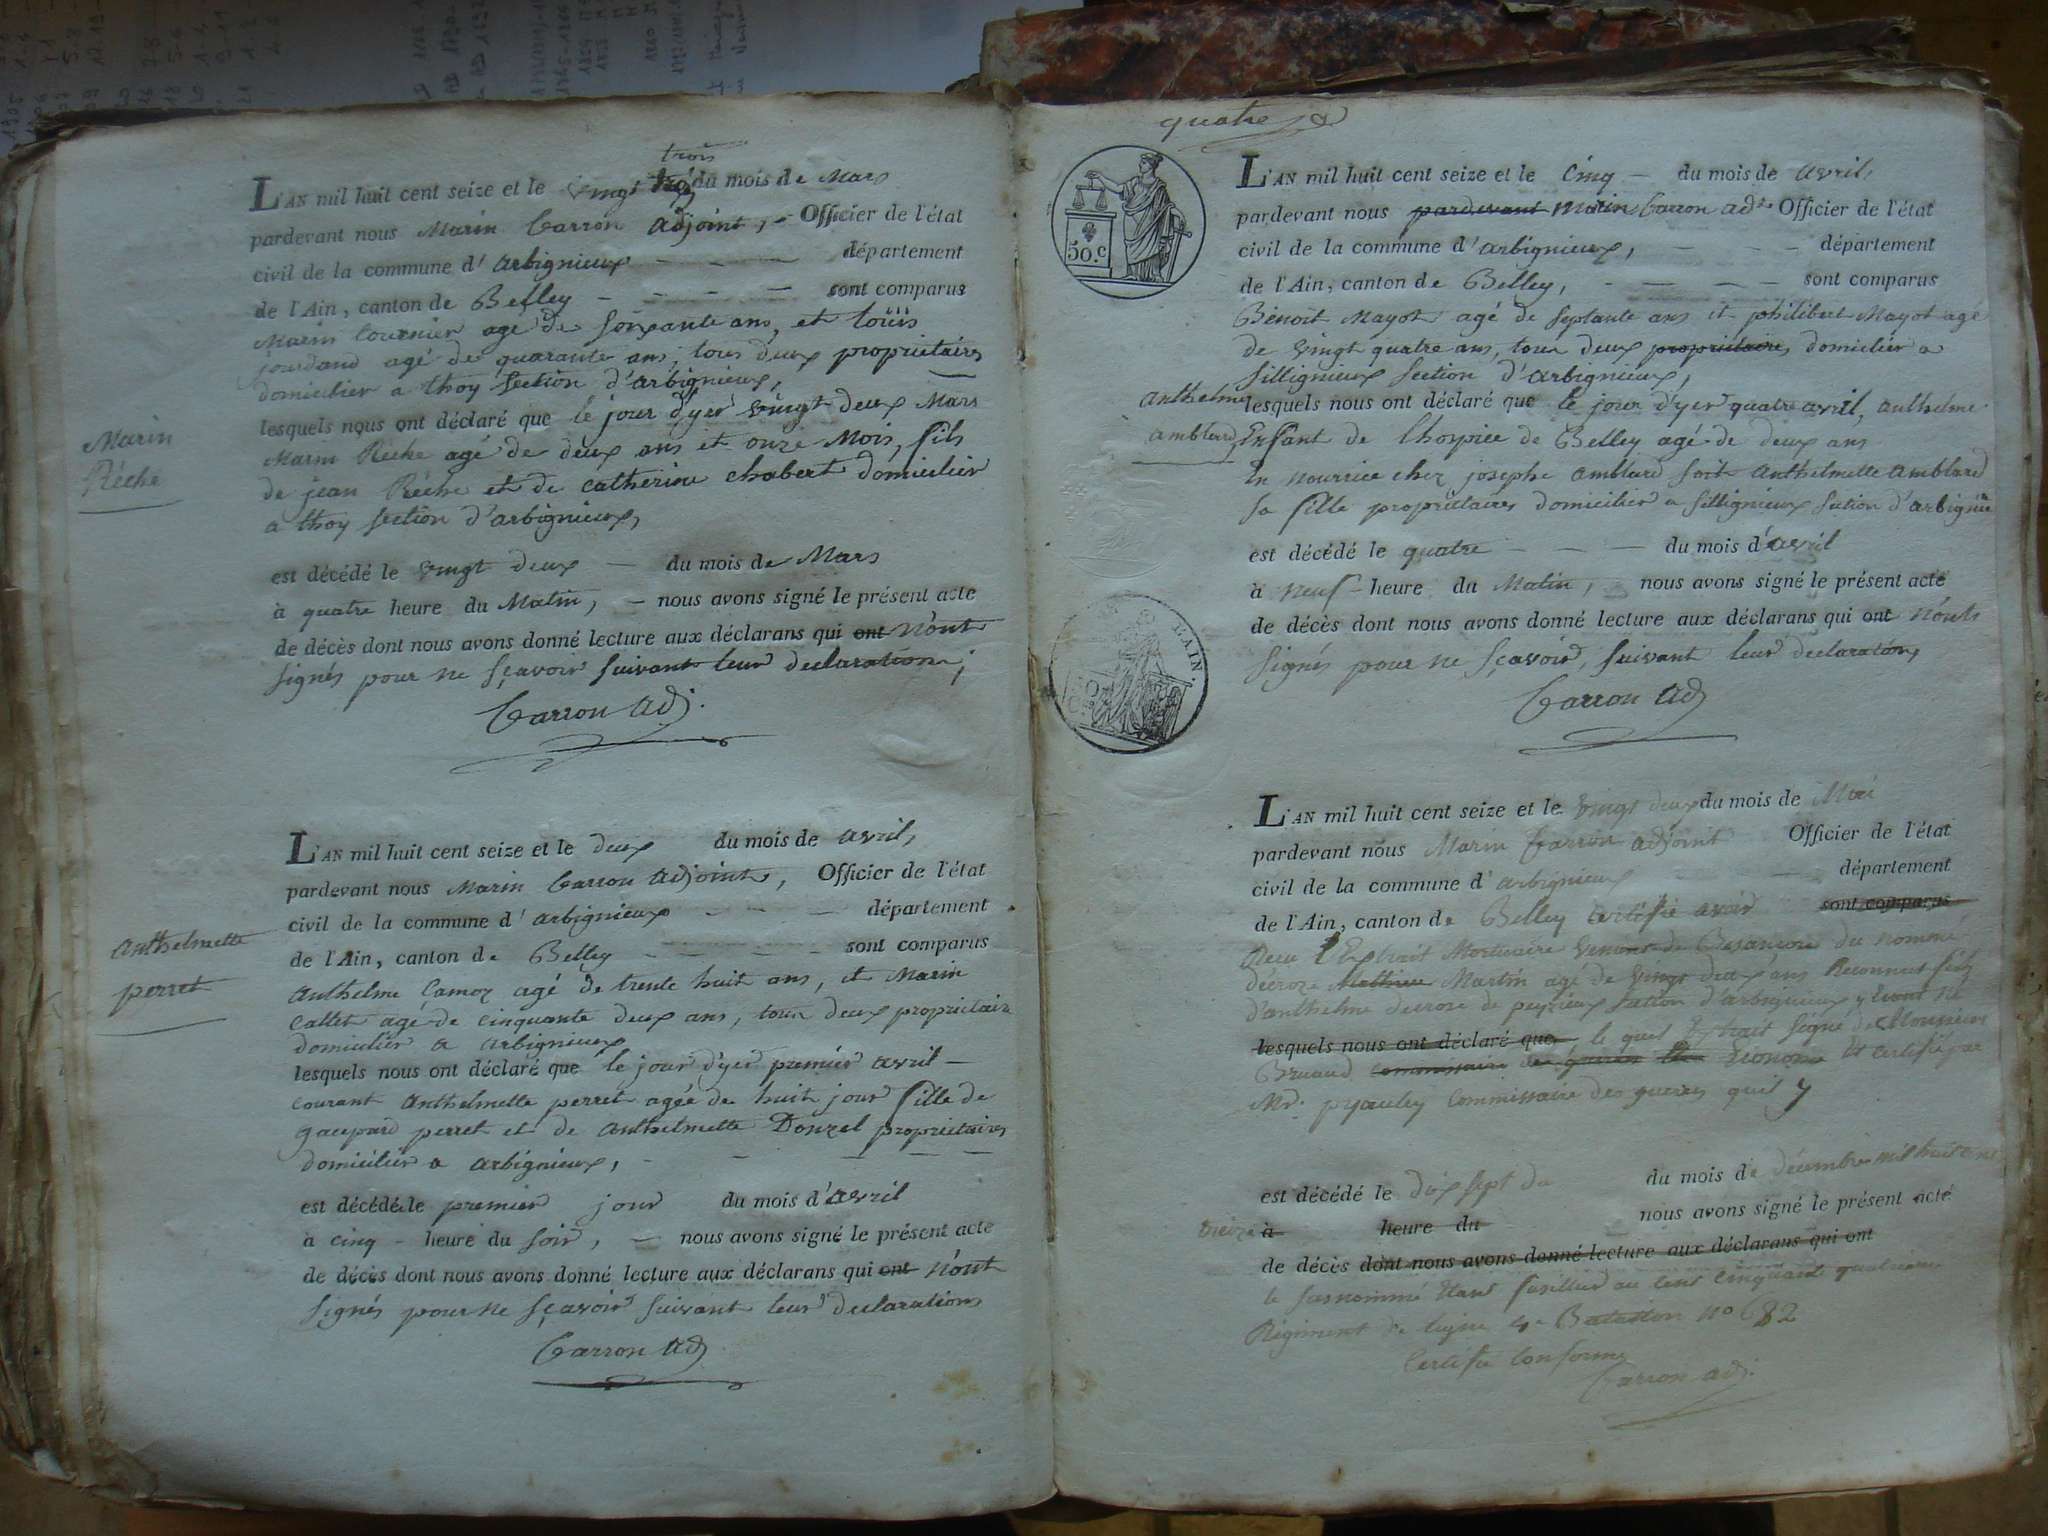 trois
L'AN mil huit cent seize et le vingt trois du mois de Mars
pardevant nous Marin Carron adjoint, Officier de l'état
civil de la commune d'arbignieux département
de l'Ain, canton de Belley sont comparus
Marin Cournier agé de soixante ans, et loüis
jourdand agé de quarante ans, tous deux proprietaires
domicilier a thoy Section d'arbignieux,
lesquels nous ont déclaré que le jour d'yer vingt deux Mars
Marin Réche agé de deux ans et onze Mois, fils
de jean Réche et de catherine chabert domicilier
a thoy section d'arbignieux,
est décédé le vingt deux du mois de Mars
à quatre heure du Matin, nous avons signé le présent acte
de décès dont nous avons donné lecture aux déclarans qui ont n'ont
signés pour ne sçavoir suivant leur declaration;
Carron adj.
Marin
Réche
L'AN mil huit cent seize et le deux du mois de avril,
pardevant nous Marin Carron adjoint, Officier de l'état
civil de la commune d'arbignieux département
de l'Ain, canton de Belley sont comparus
Anthelme Camoz agé de trente huit ans, et Marin
Callet agé de cinquante deux ans, tous deux proprietaire
domicilier a arbignieux
lesquels nous ont déclaré que le jour d'yer premier avril
courant Anthelmette perret agée de huit jour fille de
gaspard perret et de anthelmette Donzel proprietaires
domicilier a arbignieux,
est décédé le premier jour du mois d'avril
à cinq heure du soir, nous avons signé le présent acte
de décès dont nous avons donné lecture aux déclarans qui ont n'ont
signés pour ne sçavoir suivant leur declaration
Carron adj
anthelmette
perret
quatre
50.c
L'AN mil huit cent seize et le cinq du mois de avril,
pardevant nous pardevant Marin Carron adt Officier de l'état
civil de la commune d'arbignieux, département
de l'Ain, canton de Belley, sont comparus
Benoit Mayot agé de septante ans et philibert Mayot agé
de vingt quatre ans, tous deux proprietaires domicilier a
sillignieux section d'arbignieux,
lesquels nous ont déclaré que le jour d'yer quatre avril, anthelme
Enfant de lhospice de Belley agé de deux ans
En nourrice chez josephe amblard soit Anthelmette amblard
sa fille proprietaires domicilier a sillignieux section d'arbignieu
est décédé le quatre du mois d'avril
à neuf heure du Matin, nous avons signé le présent acte
de décès dont nous avons donné lecture aux déclarans qui ont n'onts
signés pour ne sçavoir, suivant leur declaration,
Carron adj
anthelme
amblard,
LAIN.
L'AN mil huit cent seize et le vingt deux du mois de Mai
pardevant nous Marin Carron adjoint Officier de l'état
civil de la commune d'arbignieux département
de l'Ain, canton de Belley certifie avoir sont comparus
Recu l'Extrait Mortuaire venant de Besancon du nomme
décroze Mathieu Martin agé de vingt deux ans Reconnut fils
d'anthelme decroze de peyrieux section d'arbignieux
lesquels nous ont déclaré que le quel Extrait signé de Monsieur
Bruand commissaire de guerre Econome et certifié par
Mr. pyauley Commissaire des guerres quil y
est décédé le dix sept du du mois de décembre mil huit cent
treize à heure du nous avons signé le présent acte
de décès dont nous avons donné lecture aux déclarans qui ont
le susnommé Etant fusillier au cent cinquante quatrieme
Régiment de ligne 4e Batallon No 682
Certifié Conforme
Carron adj.